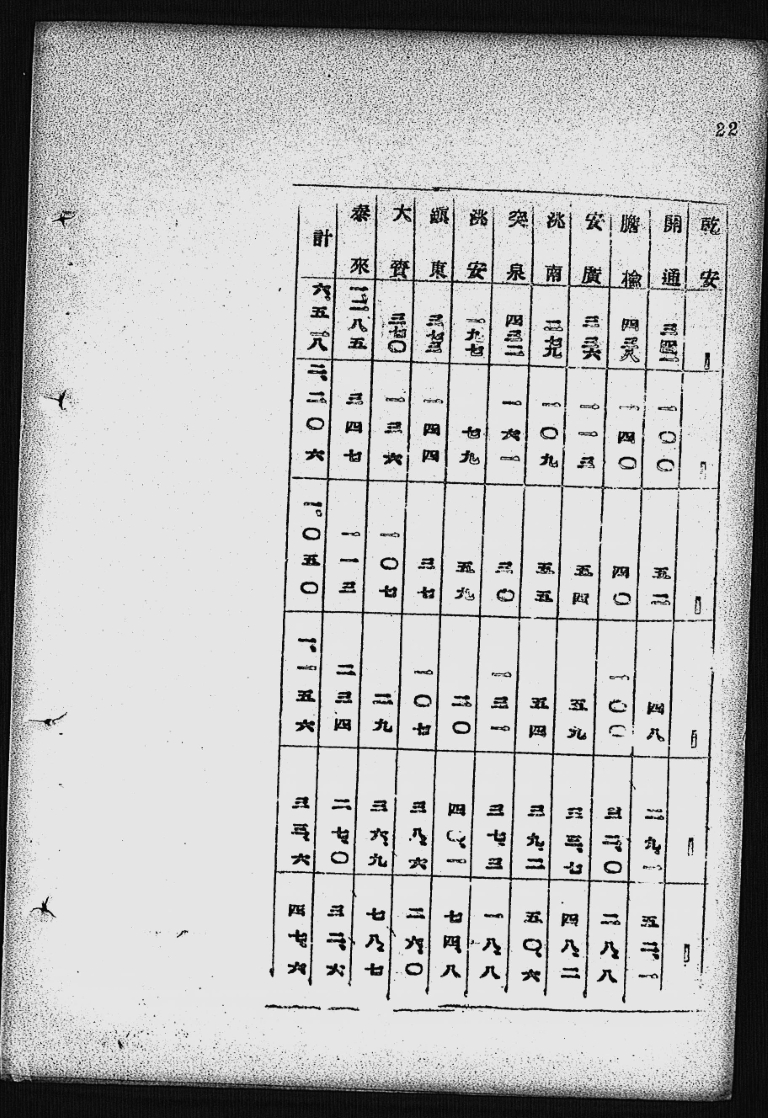 22
乾安 ー ー ー ー ー ー
開通 三四二 一〇〇 五二 四八 二九、一 五二、一
瞻榆 四三八 一四〇 四〇 一〇〇 三二、〇 二八、八
安廣 三三六 一一三 五四 五九 三三、七 四八、二
洮南 二七九 一〇九 五五 五四 三九、二 五〇、六
突泉 四三二 一六一 三〇 一三一 三七、三 一八、八
洮安 一九七 七九 五九 二〇 四〇、一 七四、八
鎭東 三七三 一四四 三七 一〇七 三八、六 二六、〇
大賚 三七〇 一三六 一〇七 二九 三六、九 七八、七
泰來 一、二八五 三四七 一一三 二三四 二七、〇 三二、六
計 六、五一八 二、二〇六 一、〇五〇 一、一五六 三三、六 四七、六